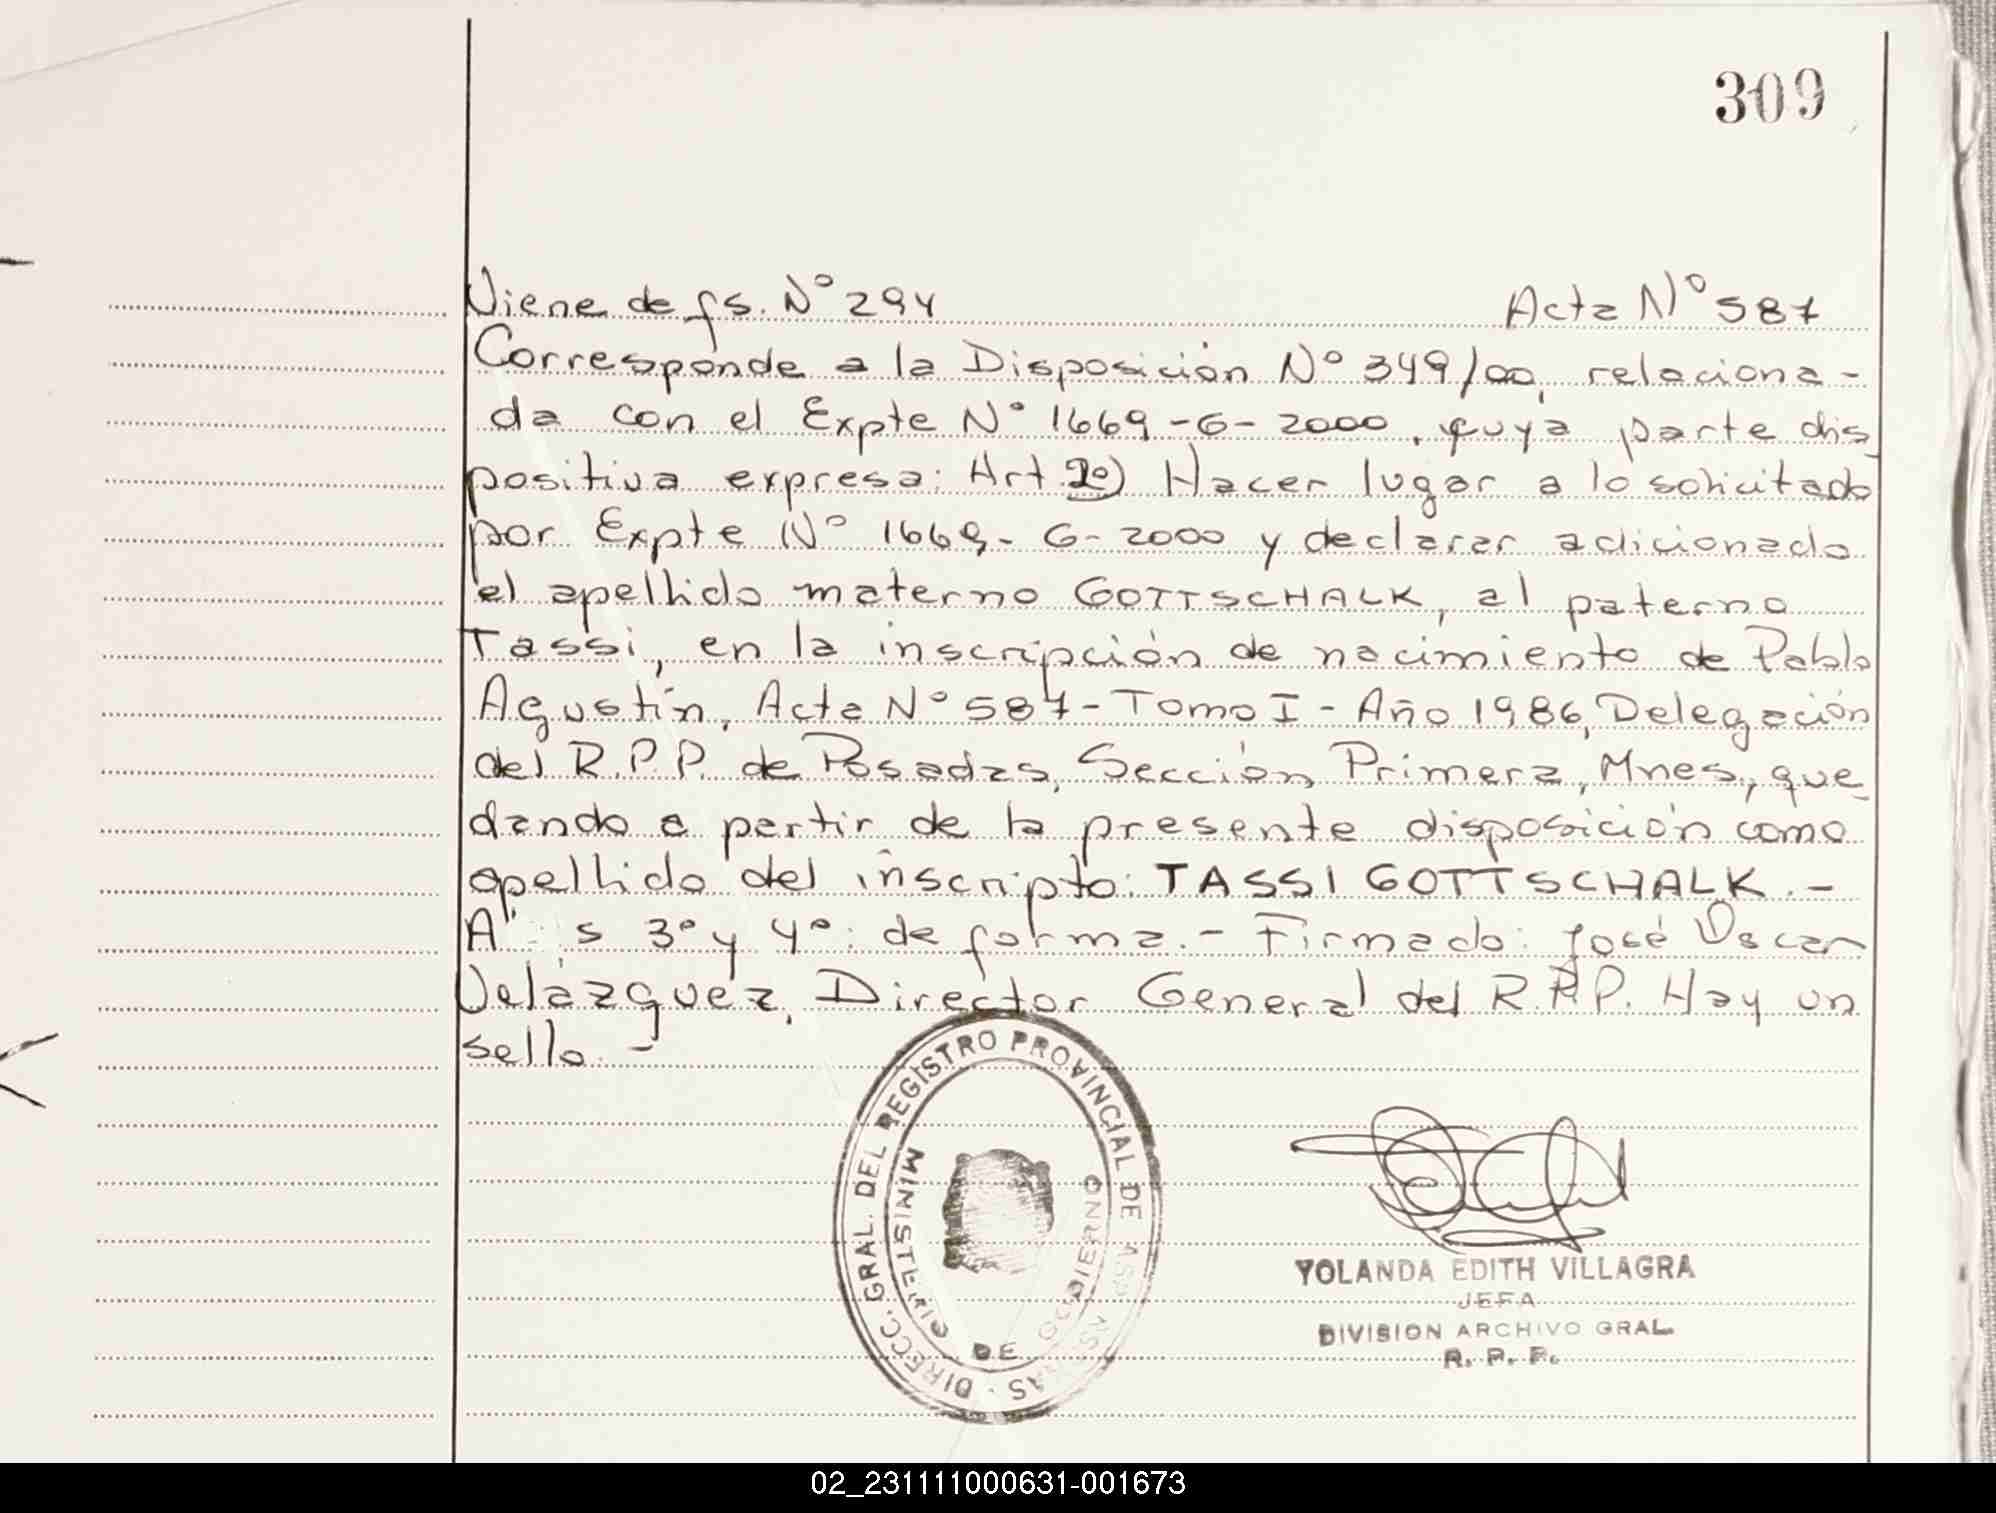 309
Viene de fs. N° 294 Acta N° 587
Corresponde a la Disposición N° 349/00, relaciona-
da con el Expte N° 1669-G-2000, cuya parte dis
positiva expresa: Art. 2°) Hacer lugar a lo solicitado
por Expte N° 1669-G-2000 y declarar adicionado
el apellido materno GOTTSCHALK, al paterno
Tassi, en la inscripción de nacimiento de Pablo
Agustín, Acta N° 587-Tomo I-Año 1986, Delegación
del R.P.P. de Posadas, Sección Primera, Mnes., que
dando a partir de la presente disposición como
apellido del inscripto: TASSI GOTTSCHALK.-
3° y 4°: de forma.- Firmado: José Oscar
Velázquez, Director General del R.P.P. Hay un
sello.-
DIRECC. GRAL. DEL REGISTRO PROVINCIAL DE
MINISTERIO DE GOBIERNO
YOLANDA EDITH VILLAGRA
JEFA
DIVISION ARCHIVO GRAL.
R. P. P.
02_231111000631-001673